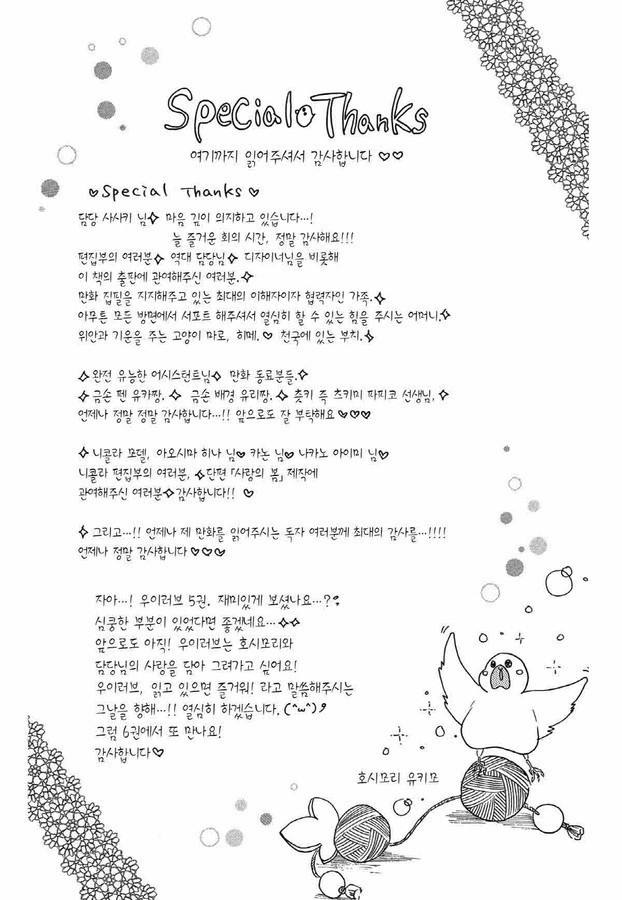 Special Thanks
여기까지 읽어주셔서 감사합니다 ♡♡
♡Special Thanks♡
담당 사사키 님✧ 마음 깊이 의지하고 있습니다…!
늘 즐거운 회의 시간, 정말 감사해요!!!
편집부의 여러분✧ 역대 담당님✧ 디자이너님을 비롯해
이 책의 출판에 관여해주신 여러분.✧
만화 집필을 지지해주고 있는 최대의 이해자이자 협력자인 가족.✧
아무튼 모든 방면에서 서포트 해주셔서 열심히 할 수 있는 힘을 주시는 어머니.✧
위안과 기운을 주는 고양이 마로, 히메.♡ 천국에 있는 부치.✧
✧완전 유능한 어시스턴트님✧ 만화 동료분들.✧
✧금손 펜 유카짱.✧ 금손 배경 유리짱.✧ 츳키 즉 츠키미 파피코 선생님,✧
언제나 정말 정말 감사합니다…!! 앞으로도 잘 부탁해요♡♡♡
✧니콜라 모델, 아오시마 히나 님♡ 카논 님♡ 나카노 아이미 님♡
니콜라 편집부의 여러분, ✧단편 「사랑의 봄」 제작에
관여해주신 여러분✧감사합니다!! ♡
✧그리고…!! 언제나 제 만화를 읽어주시는 독자 여러분께 최대의 감사를…!!!!
언제나 정말 감사합니다♡♡♡
자아…! 우이러브 5권. 재미있게 보셨나요…?
심쿵한 부분이 있었다면 좋겠네요…✧✧
앞으로도 아직! 우이러브는 호시모리와
담당님의 사랑을 담아 그려가고 싶어요!
우이러브, 읽고 있으면 즐거워! 라고 말씀해주시는
그날을 향해…!! 열심히 하겠습니다.(^ω^)9
그럼 6권에서 또 만나요!
감사합니다♡
호시모리 유키모